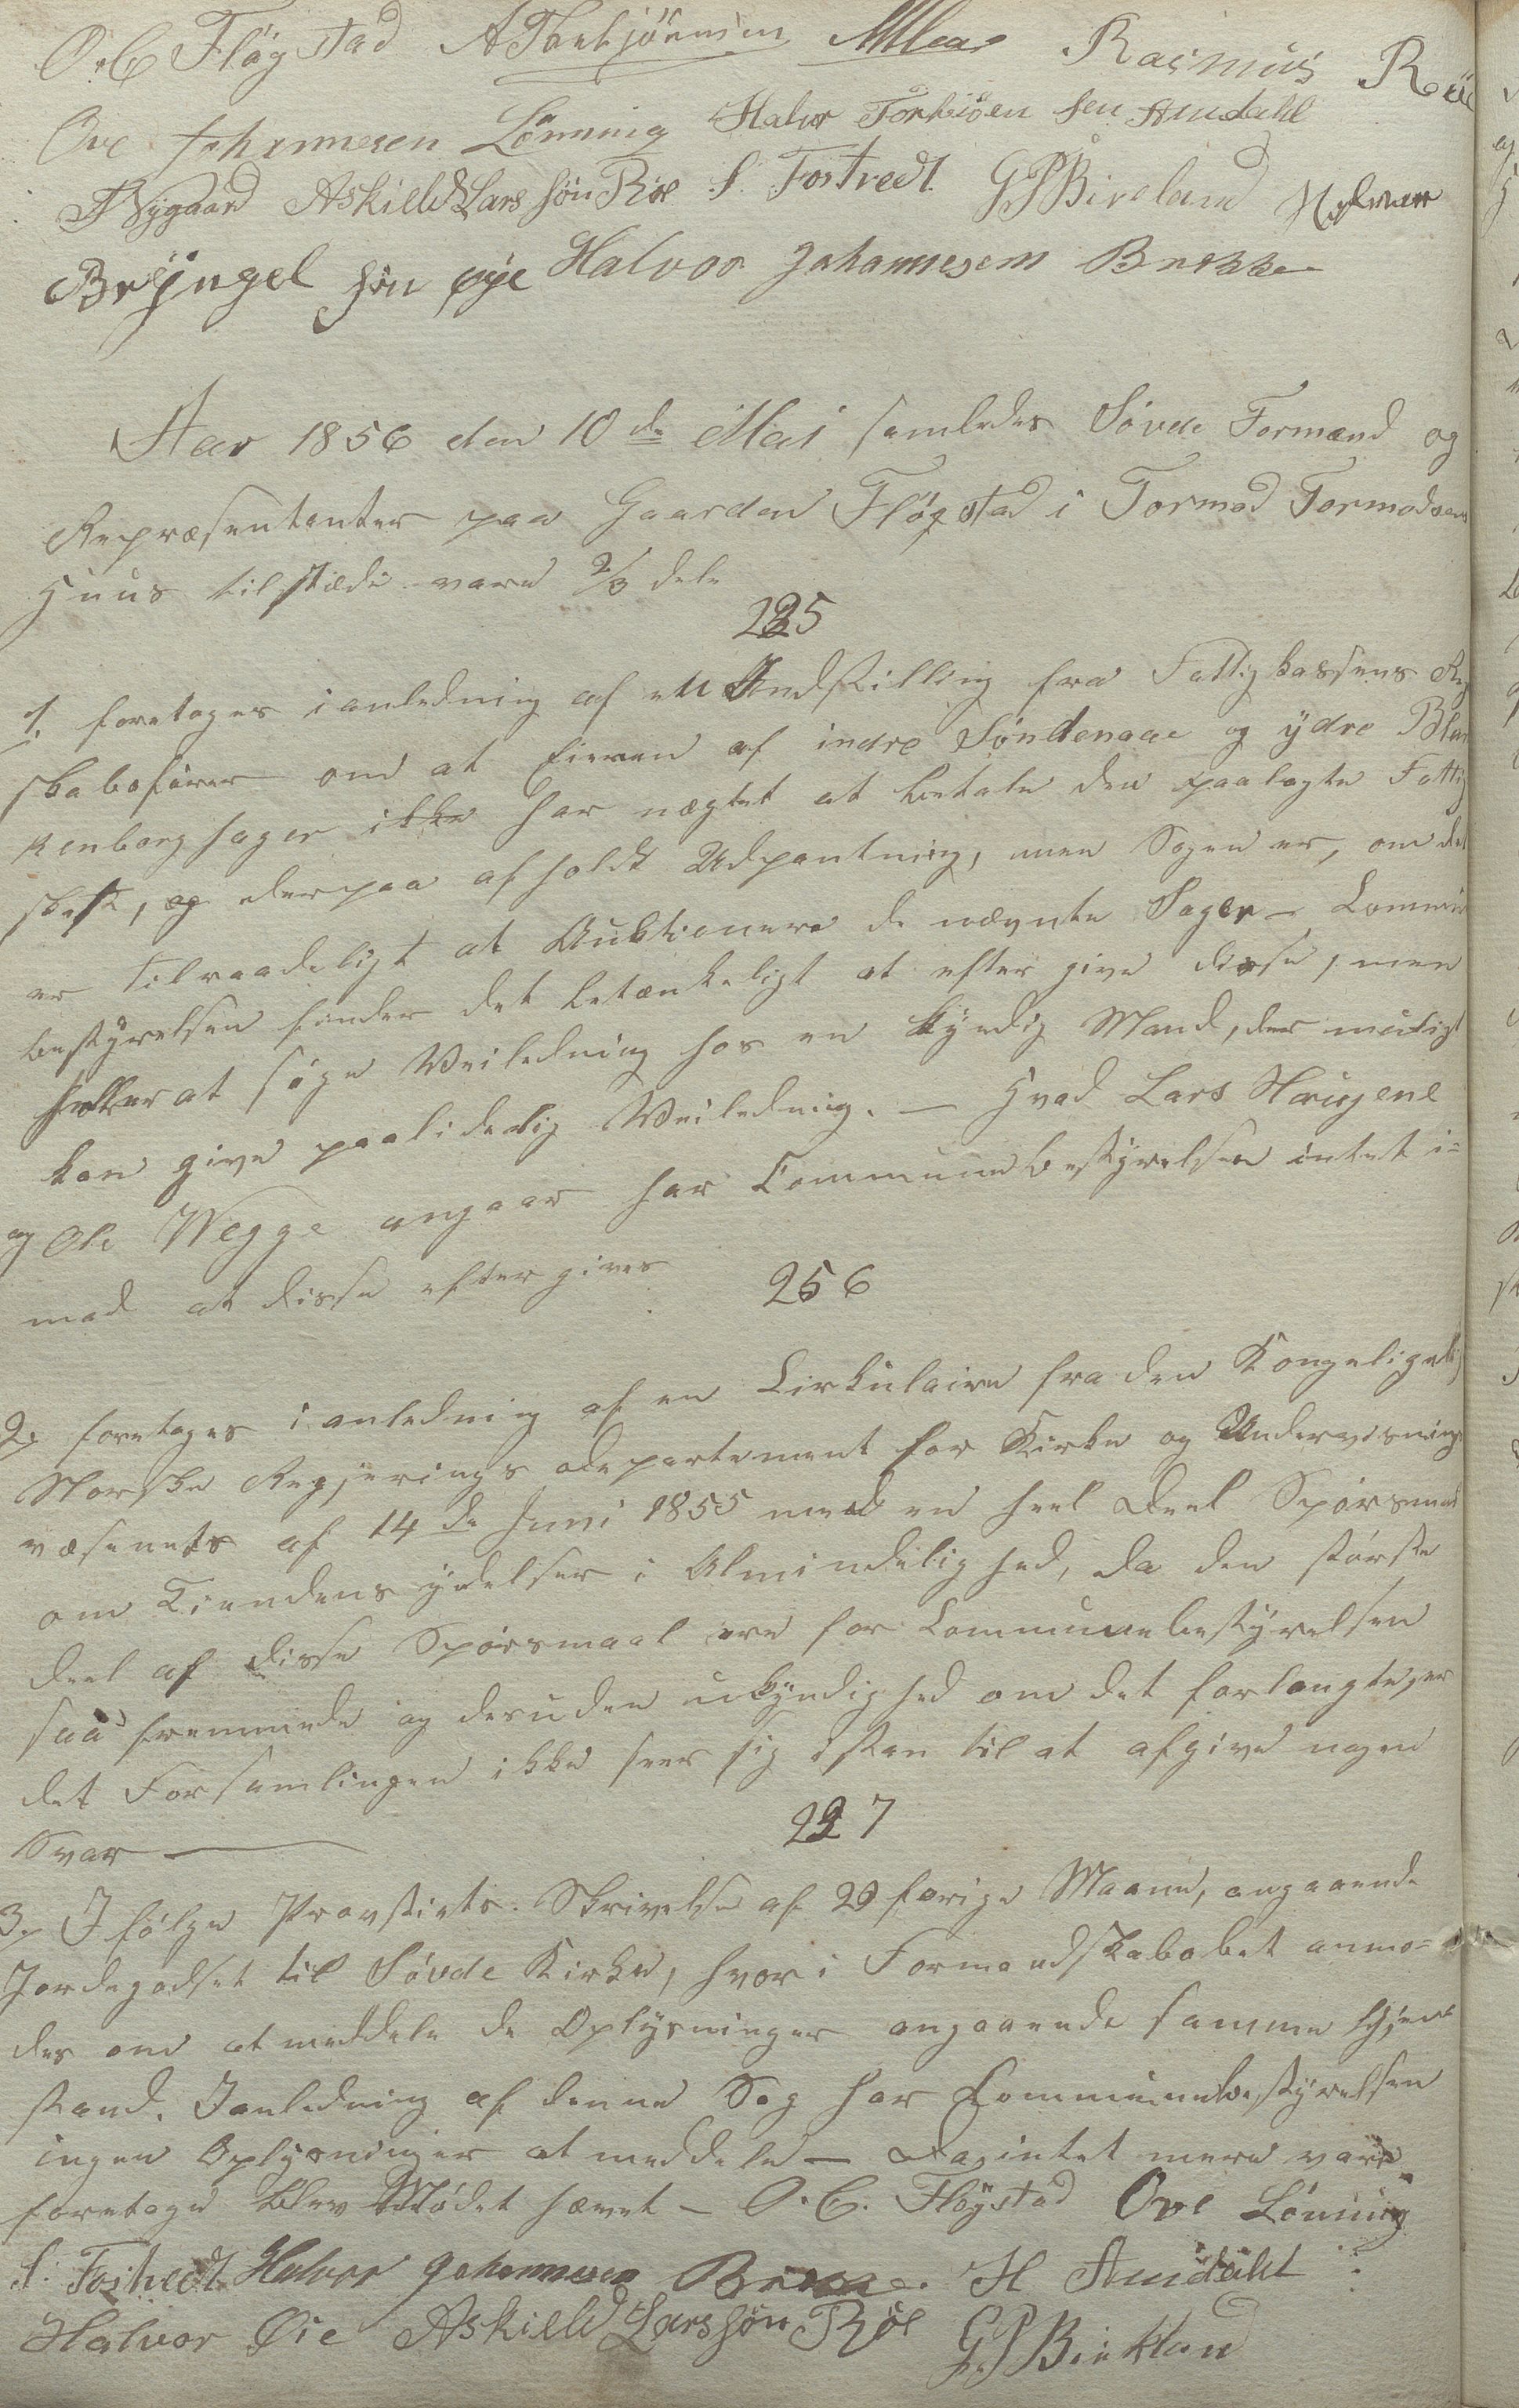 O. C. Fløgstad A Torkjönnsen Rasmus
Ove Johannesen Lønning Halvor Torkeisen sen Amdahl
Nygaard Askield Lars søn Røe S. Tostvedt G P Bireland
Brÿngel søn øye Halvor Johannesen Brekke
Aar 1856 den 10de Mai samledes Søvde Formænd og
Repræsentanter paa Gaarden Fløgstad i Tormod Tormodsens
Huus tilstæde vare 2/3 dele
225
1. foretoges i anledning af ett Indstilling fra Fattigkassens Reg
skabsfører om at Eieren af indre Søndenaae og ydre Blan
kenberghager ikke har nægtet at betale den paalagte Fattig
skat, og derpaa afholdt Udpantning, men Sagen er, om det
er tilraadeligt at Auktionere de nævnte Sager – Commün
bestyrelsen finder det betænkeligt at eftergive disse, men
holder at søge Veiledning hos en kyndig Mand, der muligt
kan give paalidelig Veiledning. – Hvad Lars Haugene
og Ole Wegge angaar har Communebestyrelsen intet i-
mod at disse eftergives
256
2. foretoges i anledning af en Cirkulaire fra den Kongelige
Norske Regjerings Departement for Kirke og Undervisnings
væsenets af 14de Juni 1855 med en heel Deel Spørsmaal
om Tiendens ydelser i Almindelighed, da den største
deel af disse Spørsmaal ere for Communebestyrelsen
saa fremmede og desuden ukyndighed om det forlangte, er
det Forsamlingen ikke seer sig istan til at afgive nogen
Svar
227
3. I følge Provstiets Skrivelse af 29 forige Maane, angaaende
Jordegodset til Søvde Kirke, hvori Formandskabet anmo-
des om at meddele de Oplysninger angaaende samme Gjen
stand. I anledning af denne Sag har Communebestyrelsen
ingen Oplysninger at meddele – Da intet mere var
foretage blev Mødet hævet – O. C. Fløgstad Ove Lønning
S. Tostvedt Halvor Johannesen Brekke. H Amdahl
Halvor Øie Askield Lars søn Røe G P Birkland